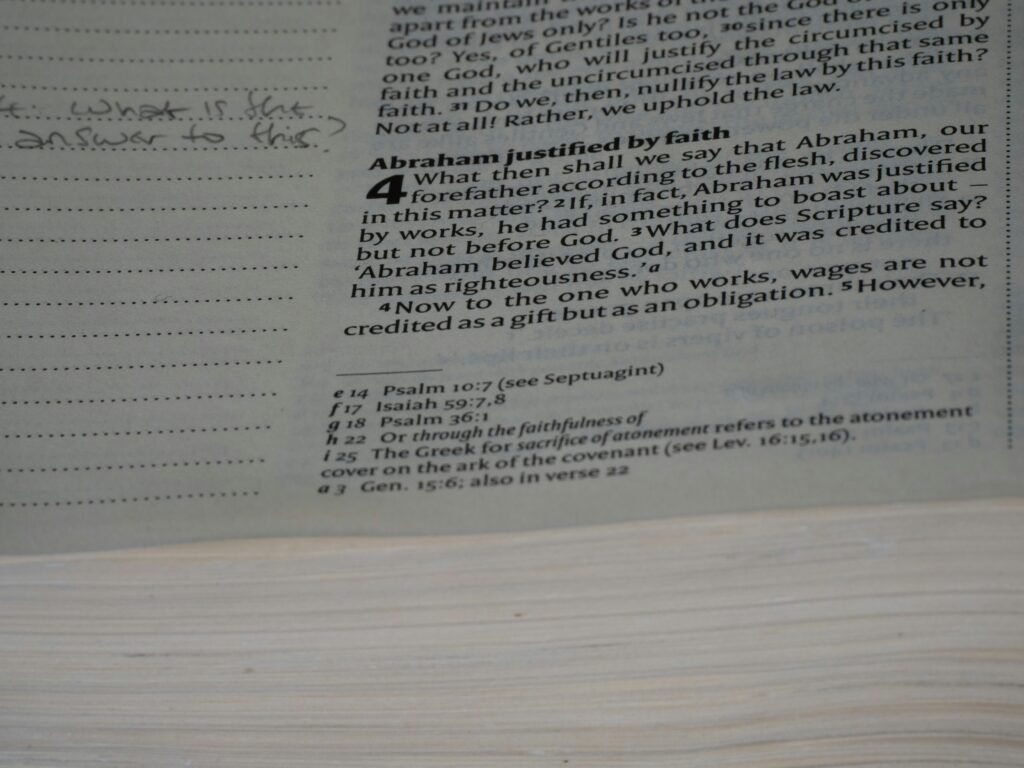 what is the
answer to this?
we maintain
apart from the works of
God of Jews only? Is he not the God of
too? Yes, of Gentiles too, 30 since there is only
one God, who will justify the circumcised by
faith and the uncircumcised through that same
faith. 31 Do we, then, nullify the law by this faith?
Not at all! Rather, we uphold the law.
Abraham justified by faith
4 What then shall we say that Abraham, our
forefather according to the flesh, discovered
in this matter? 2 If, in fact, Abraham was justified
by works, he had something to boast about –
but not before God. 3 What does Scripture say?
‘Abraham believed God, and it was credited to
him as righteousness.’ a
4 Now to the one who works, wages are not
credited as a gift but as an obligation. 5 However,
e 14 Psalm 10:7 (see Septuagint)
f 17 Isaiah 59:7,8
g 18 Psalm 36:1
h 22 Or through the faithfulness of
i 25 The Greek for sacrifice of atonement refers to the atonement
cover on the ark of the covenant (see Lev. 16:15,16).
a 3 Gen. 15:6; also in verse 22